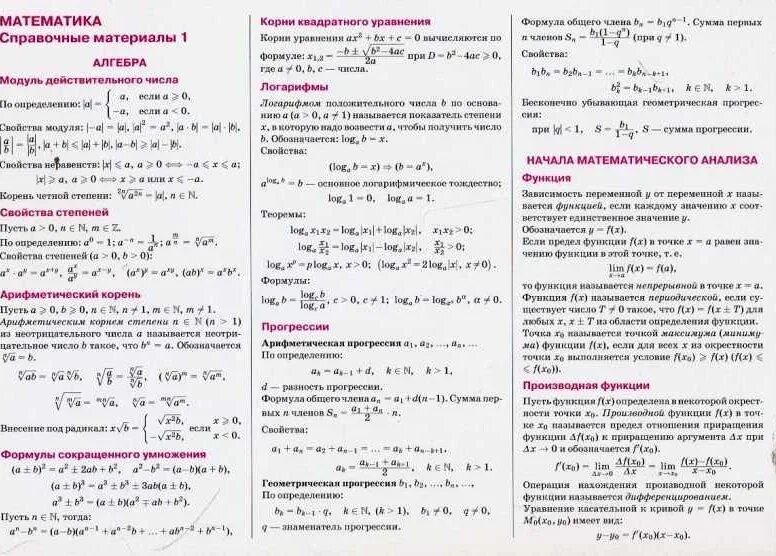 МАТЕМАТИКА
Справочные материалы 1
АЛГЕБРА
Модуль действительного числа
По определению: |a| = { a, если a ⩾ 0,
−a, если a < 0.
Свойства модуля: |−a| = |a|, |a|² = a², |a · b| = |a| · |b|,
|a/b| = |a|/|b|, |a + b| ⩽ |a| + |b|, |a−b| ⩾ |a|−|b|.
Свойства неравенств: |x| ⩽ a, a ⩾ 0 ⟺ −a ⩽ x ⩽ a;
|x| ⩾ a, a ⩾ 0 ⟺ x ⩾ a или x ⩽ −a.
Корень четной степени: ²ⁿ√a²ⁿ = |a|, n ∈ ℕ.
Свойства степеней
Пусть a > 0, n ∈ ℕ, m ∈ ℤ.
По определению: a⁰ = 1; a⁻ⁿ = 1/aⁿ; a^(m/n) = ⁿ√aᵐ.
Свойства степеней (a > 0, b > 0):
aˣ · aʸ = aˣ⁺ʸ, aˣ/aʸ = aˣ⁻ʸ, (aˣ)ʸ = aˣʸ, (ab)ˣ = aˣbˣ.
Арифметический корень
Пусть a ⩾ 0, b ⩾ 0, n ∈ ℕ, n ≠ 1, m ∈ ℕ, m ≠ 1.
Арифметическим корнем степени n ∈ ℕ (n > 1)
из неотрицательного числа a называется неотри-
цательное число b такое, что bⁿ = a. Обозначается
ⁿ√a = b.
ⁿ√ab = ⁿ√a ⁿ√b, ⁿ√(a/b) = ⁿ√a/ⁿ√b, (ⁿ√a)ᵐ = ⁿ√aᵐ,
ⁿ√(ᵐ√a) = ᵐⁿ√a, ⁿ√a = ᵐⁿ√aᵐ.
Внесение под радикал: x√b = { √x²b, если x ⩾ 0,
−√x²b, x < 0.
Формулы сокращенного умножения
(a ± b)² = a² ± 2ab + b², a²−b² = (a−b)(a + b),
(a ± b)³ = a³ ± b³ ± 3ab(a ± b),
a³ ± b³ = (a ± b)(a² ∓ ab + b²).
Пусть n ∈ ℕ, тогда:
aⁿ−bⁿ = (a−b)(aⁿ⁻¹ + aⁿ⁻²b + … + abⁿ⁻² + bⁿ⁻¹),
Корни квадратного уравнения
Корни уравнения ax² + bx + c = 0 вычисляются по
формуле: x₁,₂ = (−b ± √(b²−4ac))/2a при D = b²−4ac ⩾ 0,
где a ≠ 0, b, c — числа.
Логарифмы
Логарифмом положительного числа b по основа-
нию a (a > 0, a ≠ 1) называется показатель степени
x, в которую надо возвести a, чтобы получить число
b. Обозначается: logₐ b = x.
Свойства:
(logₐ b = x) ⇒ (b = aˣ),
a^(logₐ b) = b — основное логарифмическое тождество;
logₐ 1 = 0, logₐ a = 1.
Теоремы:
logₐ x₁x₂ = logₐ|x₁| + logₐ|x₂|, x₁x₂ > 0;
logₐ x₁/x₂ = logₐ|x₁|−logₐ|x₂|, x₁/x₂ > 0;
logₐ xᵖ = p logₐ x, x > 0; (logₐ x² = 2logₐ|x|, x ≠ 0).
Формулы:
logₐ b = log_c b/log_c a, c > 0, c ≠ 1; logₐ b = log_(a^α) b^α, α ≠ 0.
Прогрессии
Арифметическая прогрессия a₁, a₂, …, aₙ, …
По определению:
aₖ = aₖ₋₁ + d, k ∈ ℕ, k > 1,
d — разность прогрессии.
Формула общего члена aₙ = a₁ + d(n−1). Сумма пер-
вых n членов Sₙ = (a₁ + aₙ)/2 · n.
Свойства:
a₁ + aₙ = a₂ + aₙ₋₁ = … = aₖ + aₙ₋ₖ₊₁,
aₖ = (aₖ₋₁ + aₖ₊₁)/2, k ∈ ℕ, k > 1.
Геометрическая прогрессия b₁, b₂, …, bₙ, …
По определению:
bₖ = bₖ₋₁ · q, k ∈ ℕ, (k > 1), b₁ ≠ 0, q ≠ 0,
q — знаменатель прогрессии.
Формула общего члена bₙ = b₁qⁿ⁻¹. Сумма первых
n членов Sₙ = b₁(1−qⁿ)/(1−q) (при q ≠ 1).
Свойства:
b₁bₙ = b₂bₙ₋₁ = … = bₖbₙ₋ₖ₊₁,
bₖ² = bₖ₋₁bₖ₊₁, k ∈ ℕ, k > 1.
Бесконечно убывающая геометрическая прогрес-
сия:
при |q| < 1, S = b₁/(1−q), S — сумма прогрессии.
НАЧАЛА МАТЕМАТИЧЕСКОГО АНАЛИЗА
Функция
Зависимость переменной y от переменной x назы-
вается функцией, если каждому значению x соот-
ветствует единственное значение y.
Обозначается y = f(x).
Если предел функции f(x) в точке x = a равен зна-
чению функции в этой точке, т. е.
lim x→a f(x) = f(a),
то функция называется непрерывной в точке x = a.
Функция f(x) называется периодической, если су-
ществует число T ≠ 0 такое, что f(x) = f(x ± T) для
любых x, x ± T из области определения функции.
Точка x₀ называется точкой максимума (миниму-
ма) функции f(x), если для всех x из окрестности
точки x₀ выполняется условие f(x₀) ⩾ f(x) (f(x) ⩽
⩽ f(x₀)).
Производная функции
Пусть функция f(x) определена в некоторой окрест-
ности точки x₀. Производной функции f(x) в точ-
ке x₀ называется предел отношения приращения
функции Δf(x₀) к приращению аргумента Δx при
Δx → 0 и обозначается f′(x₀).
f′(x₀) = lim Δx→0 Δf(x₀)/Δx = lim x→x₀ (f(x)−f(x₀))/(x−x₀).
Операция нахождения производной некоторой
функции называется дифференцированием.
Уравнение касательной к кривой y = f(x) в точке
M₀(x₀, y₀) имеет вид:
y−y₀ = f′(x₀)(x−x₀).